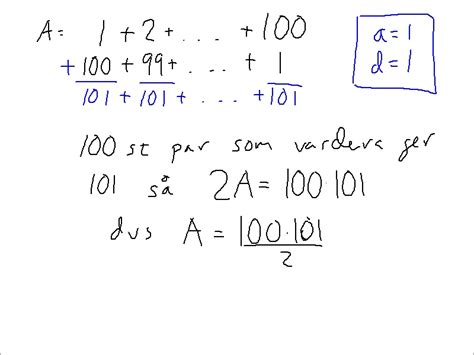 A = 1 + 2 + . . . + 100
+ 100 + 99 + . . . + 1
101 + 101 + . . . + 101
a = 1
d = 1
100 st par som vardera ger
101 så 2A = 100·101
dvs A = 100·101
2